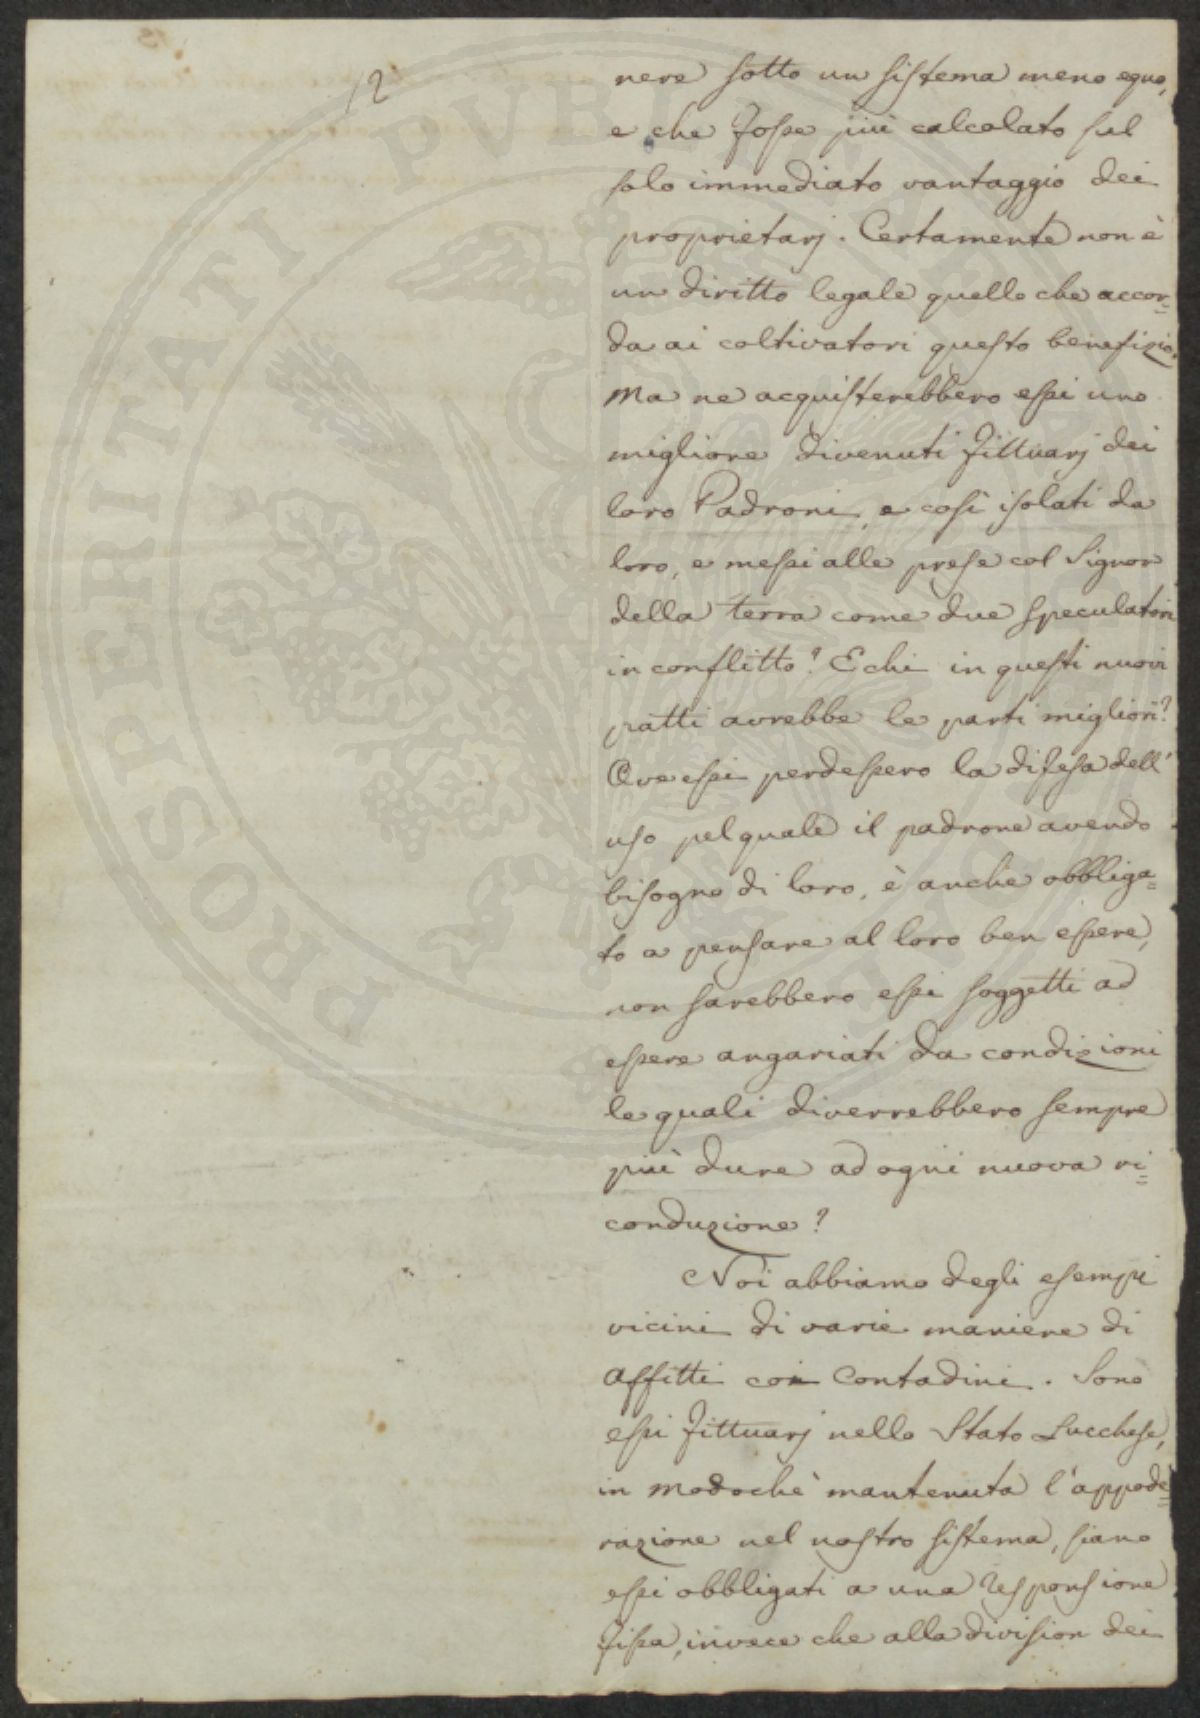 12
nere sotto un sistema meno equo,
e che fosse più calcolato sul
solo immediato vantaggio dei
proprietarj. Certamente non è
un diritto legale quello che accor=
da ai coltivatori questo benefizio.
Ma ne acquisterebbero essi uno
migliore divenuti fittuarj dei
loro Padroni, e così isolati da
loro, e messi alle prese col Signor
della terra come due speculatori
in conflitto? E chi in questi nuovi
patti avrebbe le parti migliori?
Ove essi perdessero la difesa dell'
uso pel quale il padrone avendo
bisogno di loro, è anche obbliga=
to a pensare al loro ben essere,
non sarebbero essi soggetti ad
essere angariati da condizioni
le quali diverrebbero sempre
più dure ad ogni nuova ri=
conduzione?
Noi abbiamo degli esempi
vicini di varie maniere di
affitti coi Contadini. Sono
essi fittuarj nello Stato Lucchese,
in modochè mantenuta l'appode=
razione nel nostro sistema, siano
essi obbligati a una responsione
fissa, invece che alla division dei
PROSPERITATI PVBLICAE